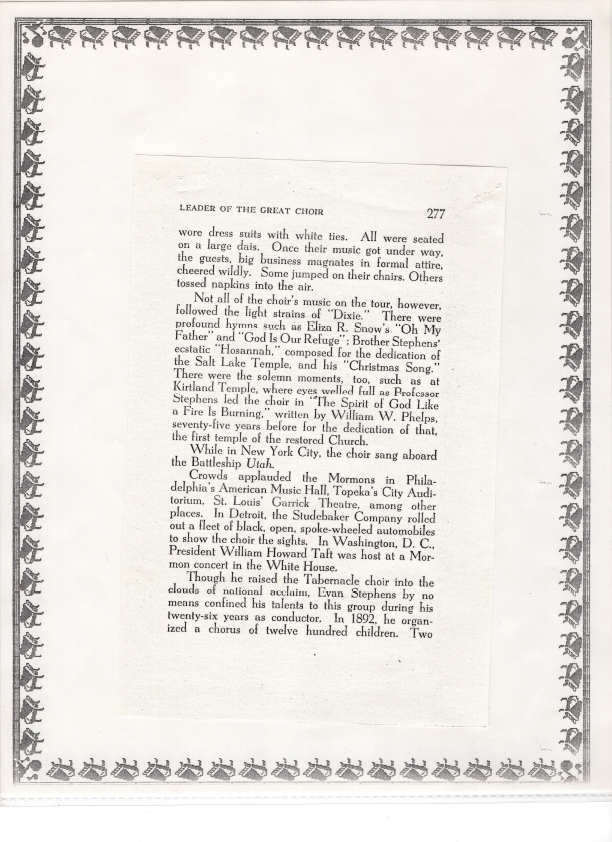 LEADER OF THE GREAT CHOIR 277
wore dress suits with white ties. All were seated
on a large dais. Once their music got under way,
the guests, big business magnates in formal attire,
cheered wildly. Some jumped on their chairs. Others
tossed napkins into the air.
Not all of the choir's music on the tour, however,
followed the light strains of "Dixie." There were
profound hymns such as Eliza R. Snow's "Oh My
Father" and "God Is Our Refuge"; Brother Stephens'
ecstatic "Hosannah," composed for the dedication of
the Salt Lake Temple, and his "Christmas Song."
There were the solemn moments, too, such as at
Kirtland Temple, where eyes welled full as Professor
Stephens led the choir in "The Spirit of God Like
a Fire Is Burning," written by William W. Phelps,
seventy-five years before for the dedication of that,
the first temple of the restored Church.
While in New York City, the choir sang aboard
the Battleship Utah.
Crowds applauded the Mormons in Phila-
delphia's American Music Hall, Topeka's City Audi-
torium, St. Louis' Garrick Theatre, among other
places. In Detroit, the Studebaker Company rolled
out a fleet of black, open, spoke-wheeled automobiles
to show the choir the sights. In Washington, D. C.,
President William Howard Taft was host at a Mor-
mon concert in the White House.
Though he raised the Tabernacle choir into the
clouds of national acclaim, Evan Stephens by no
means confined his talents to this group during his
twenty-six years as conductor. In 1892, he organ-
ized a chorus of twelve hundred children. Two